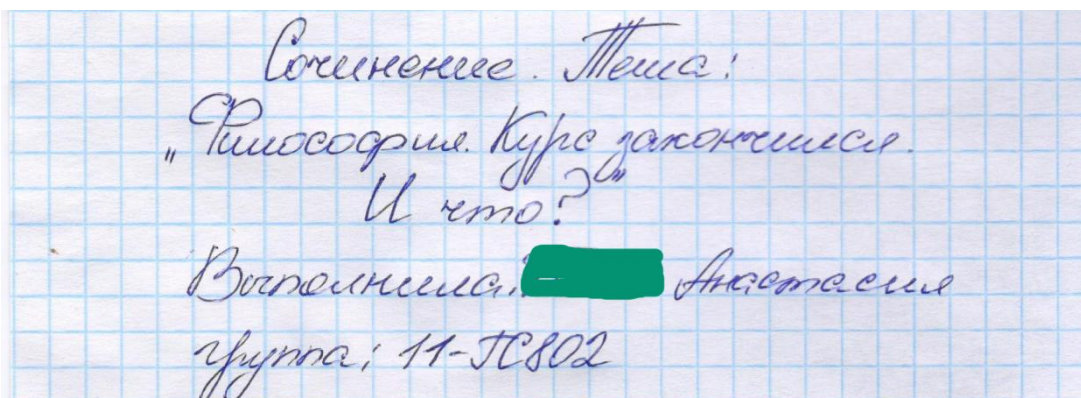 Сочинение. Тема:
„Философия. Курс закончился.
И что?"
Выполнила: Анастасия
группа: 11-ПС802